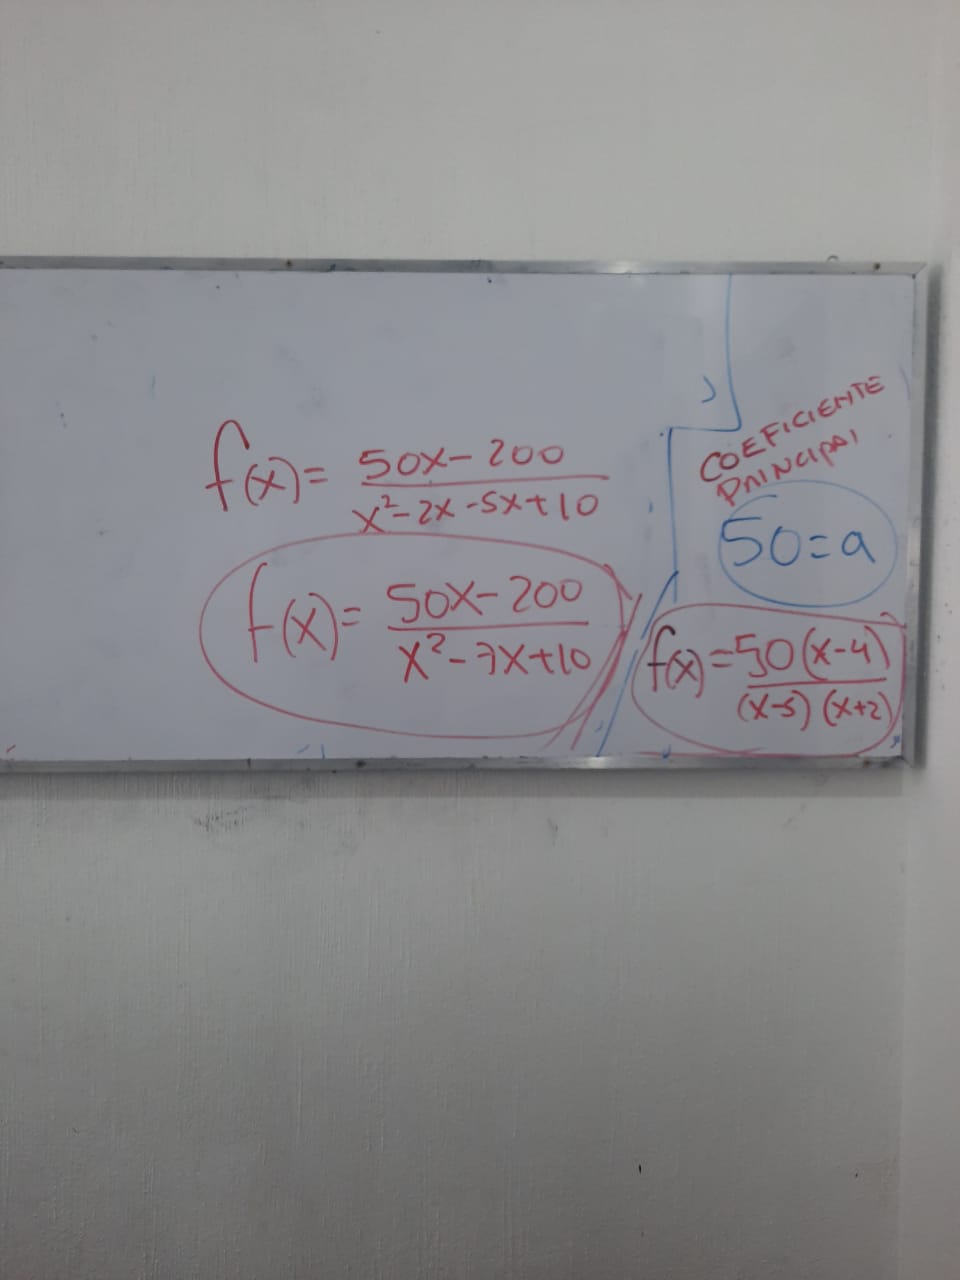 f(x)= 50x-200
x²-2x-5x+10
f(x)= 50x-200
x²-7x+10
COEFICIENTE
PRINCIPAL
50=a
f(x)=50(x-4)
(x-5)(x+2)